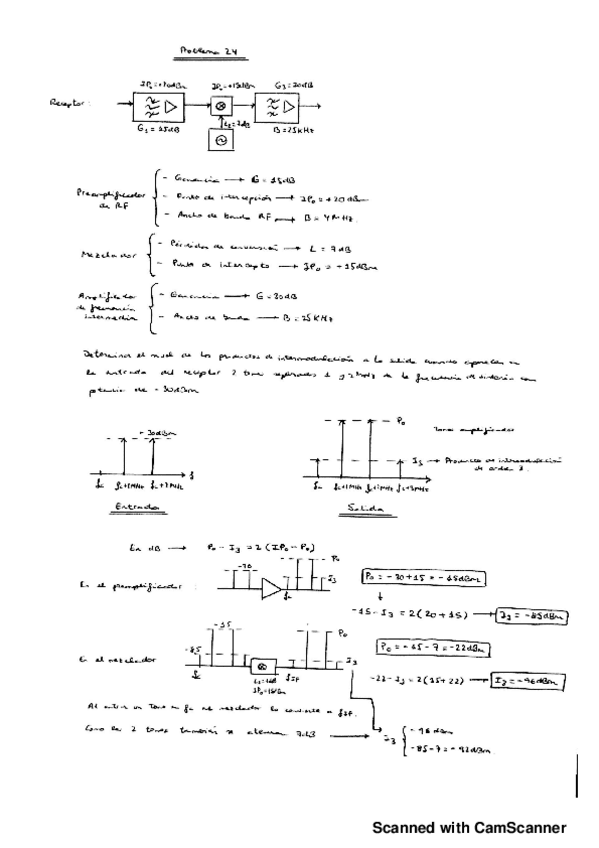 Problema 24
IP₀=+20dBm IP₀=+15dBm G₃=30dB
Receptor:
G₁=15dB L₂=7dB B=25KHz
Preamplificador de RF
- Ganancia → G=15dB
- Punto de intercepción → IP₀=+20dBm
- Ancho de banda RF → B=4MHz.
Mezclador
- Pérdidas de conversión → L=7dB
- Punto de intercepto → IP₀=+15dBm
Amplificador de frecuencia intermedia
- Ganancia → G=30dB
- Ancho de banda → B=25KHz
Determinar el nivel de los productos de intermodulación a la salida cuando aparecen en
la entrada del receptor 2 tonos separados 1 y 2MHz de la frecuencia de sintonía con
potencia de -30dBm.
-30dBm
fc fc+1MHz fc+2MHz f
Entrada
P₀
Tonos amplificados
I₃ → Productos de intermodulación de orden 3.
fc fc+1MHz fc+2MHz fc+3MHz
Salida
En dB → P₀-I₃=2(IP₀-P₀)
En el preamplificador:
-30 P₀ I₃ fc
P₀=-30+15=-15dBm
-15-I₃=2(20+15) → I₃=-85dBm
En el mezclador
-15 -85 fc P₀ I₃ fIF
L₂=7dB
IP₀=15dBm
P₀=-15-7=-22dBm
-22-I₃=2(15+22) → I₃=-96dBm
Al entrar un tono en fc el mezclador lo convierte a fIF.
Como los 2 tonos también se atenúan 7dB → I₃
-96dBm
-85-7=-92dBm
Scanned with CamScanner